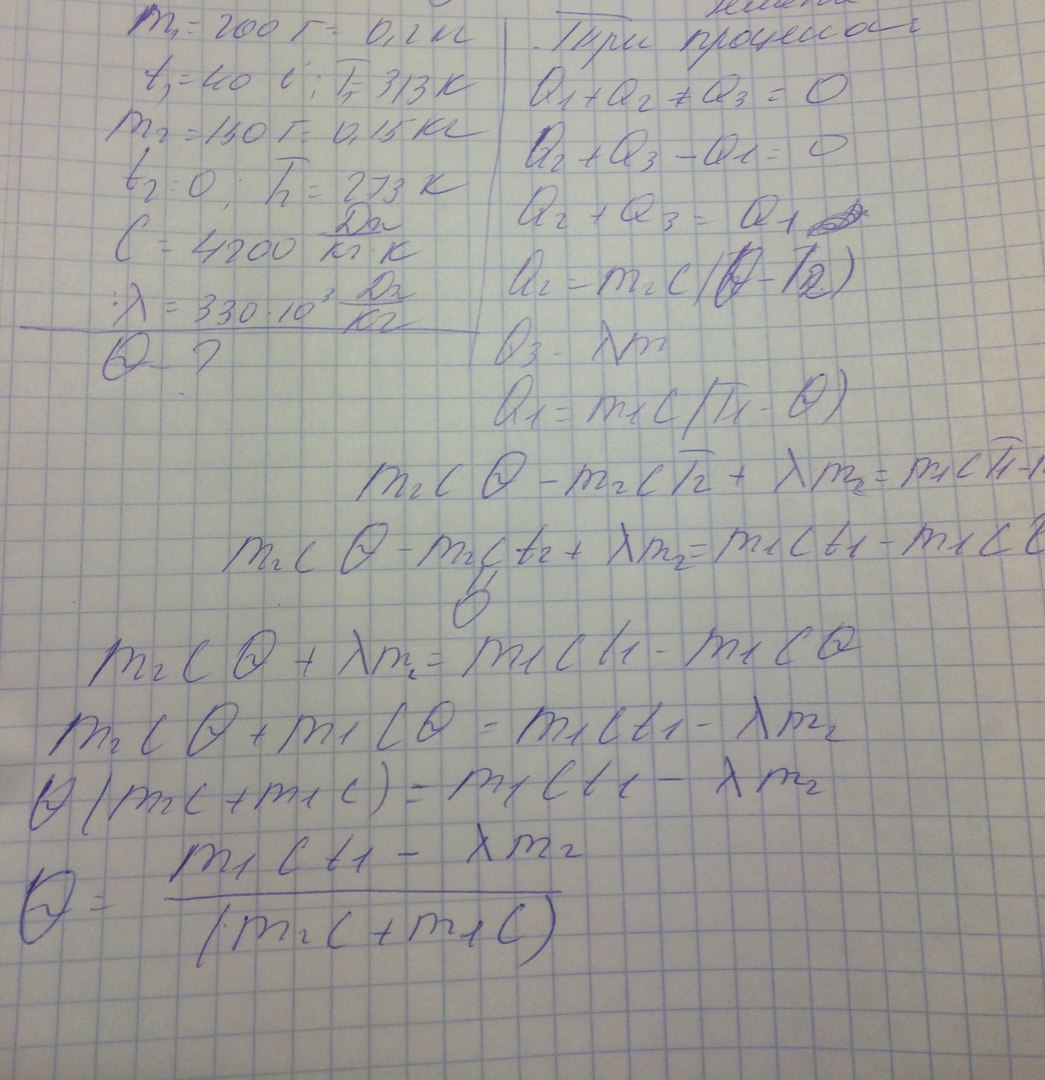 m₁ = 200 г = 0,2 кг
t₁ = 40 C; T₁ = 313 K
m₂ = 150 г = 0,15 кг
t₂ = 0; T₂ = 273 K
C = 4200 Дж/кг K
λ = 330 · 10³ Дж/кг
Θ - ?
Три процесса
Q₁ + Q₂ + Q₃ = 0
Q₂ + Q₃ - Q₁ = 0
Q₂ + Q₃ = Q₁
Q₂ = m₂C(Θ - T₂)
Q₃ = λm
Q₁ = m₁C(T₁ - Θ)
m₂CΘ - m₂CT₂ + λm₂ = m₁CT₁ -
m₂CΘ - m₂Ct₂ + λm₂ = m₁Ct₁ - m₁CΘ
0
m₂CΘ + λm₂ = m₁Ct₁ - m₁CΘ
m₂CΘ + m₁CΘ = m₁Ct₁ - λm₂
Θ(m₂C + m₁C) = m₁Ct₁ - λm₂
Θ = m₁Ct₁ - λm₂ / (m₂C + m₁C)